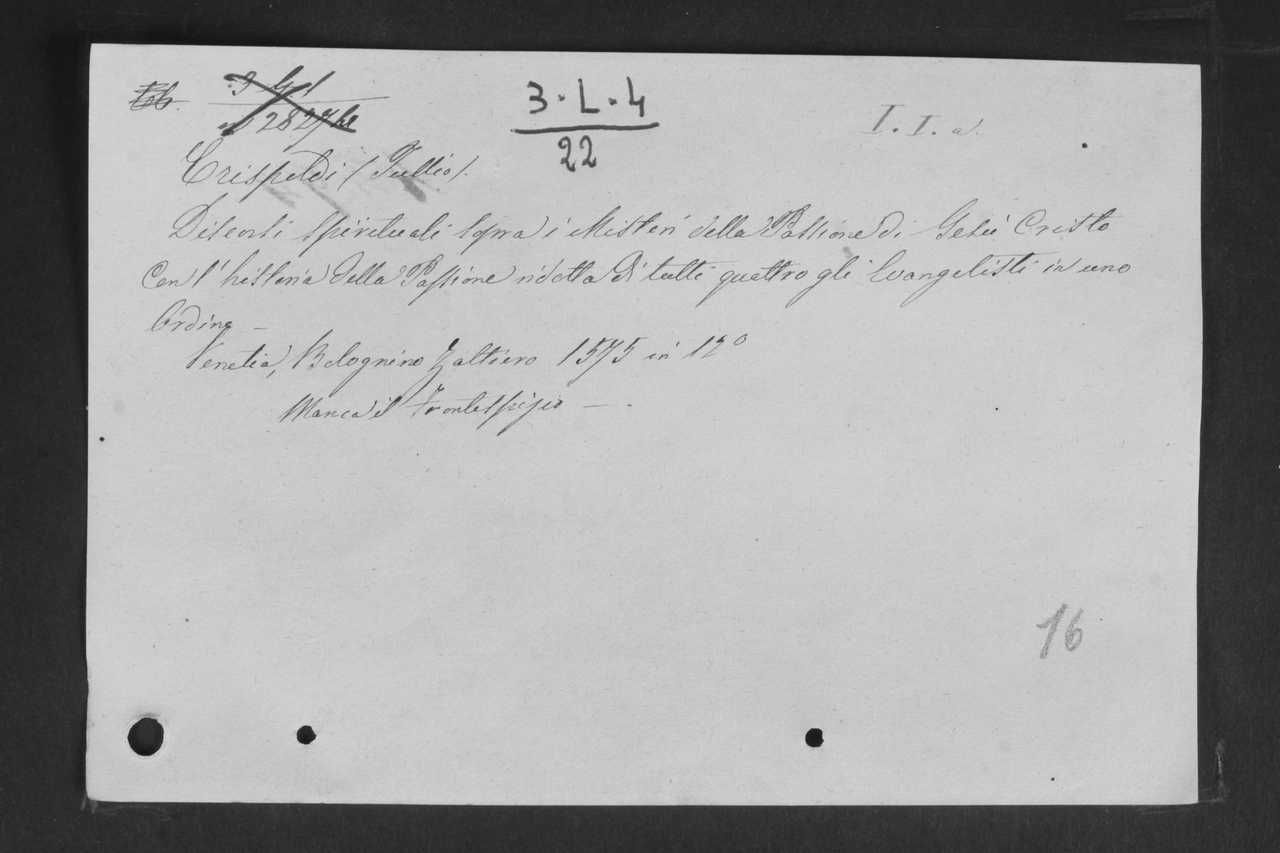 3·L·4
22
I. I. a.
Crispoldi (Tullio).
Discorsi spirituali sopra i Misteri della Passione di Gesù Cristo
con l'historia della Passione ridotta di tutti quattro gli Evangelisti in uno
Ordine —
Venetia, Bolognino Zaltiero 1575 in 12º
Manca il frontespizio —.
16